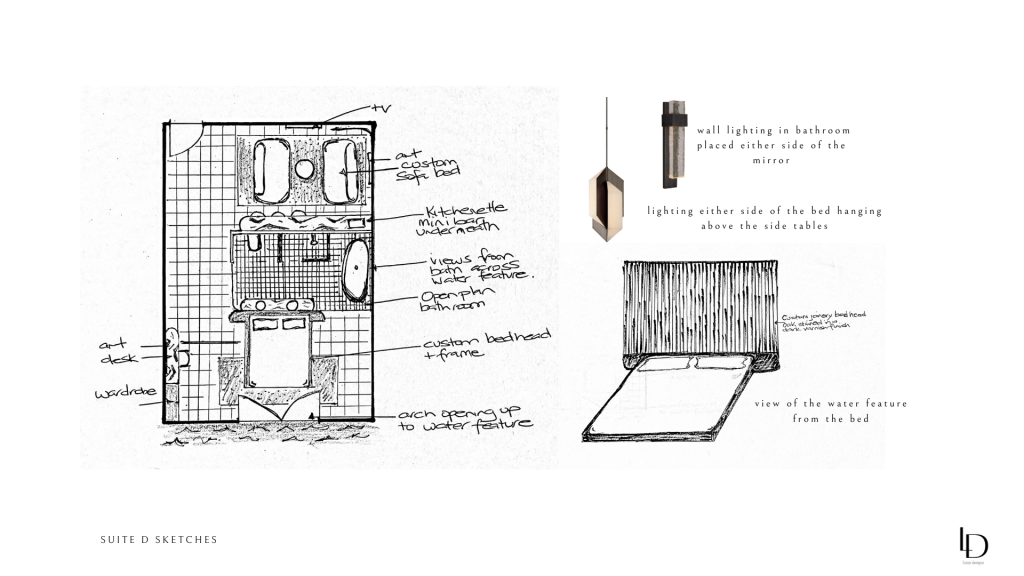 tv
art
custom
sofa bed
Kitchenette
mini bar
underneath
views from
bath across
water feature.
Open plan
bathroom
custom bedhead
+ frame
arch opening up
to water feature
art
desk
wardrobe
wall lighting in bathroom
placed either side of the
mirror
lighting either side of the bed hanging
above the side tables
Custom joinery bedhead
dark varnish finish
view of the water feature
from the bed
SUITE D SKETCHES
LD